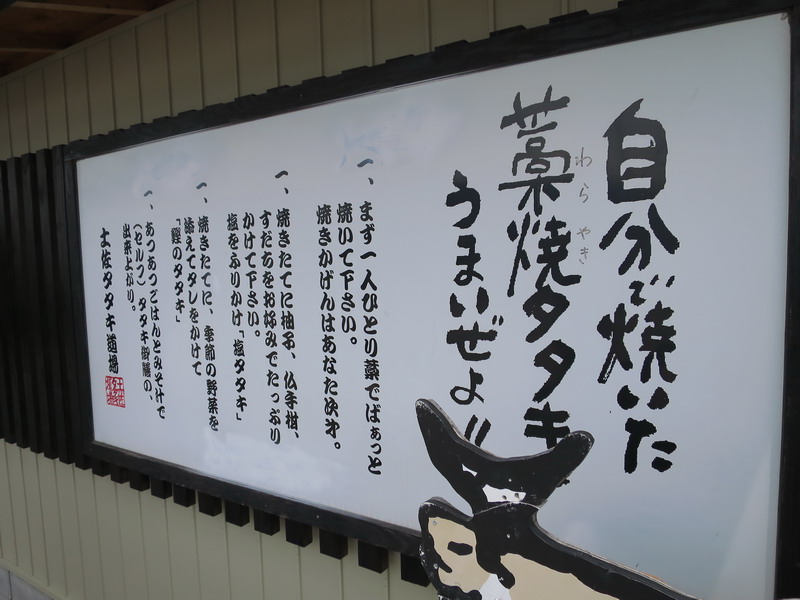 自分で焼いた
藁焼タタキ
わらやき
うまいぜよ!!
一、まず一人ひとり藁でばぁっと
焼いて下さい。
焼きかげんはあなた次才。
一、焼きたてに柚子、仏手柑、
すだちをお好みでたっぷり
かけて下さい。
塩をふりかけ「塩タタキ」
一、焼きたてに、季節の野菜を
添えてタレをかけて
「鰹のタタキ」
一、あつあつごはんとみそ汁で
(セルフ)タタキ御膳の、
出来上がり。
土佐タタキ道場